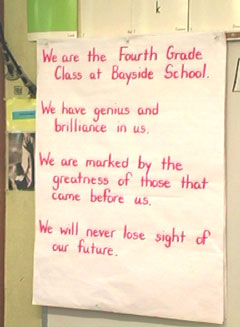 k
We are the Fourth Grade
Class at Bayside School.
We have genius and
brilliance in us.
We are marked by the
greatness of those that
came before us.
We will never lose sight of
our future.